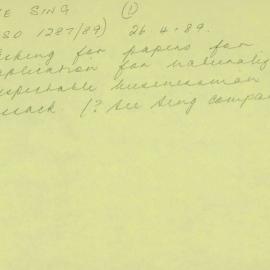 E SING (1)
SO 1287/89) 26.4.89.
sking for papers for
pplication for naturaliz
espectable businessman
ssack. (? See Sing compa